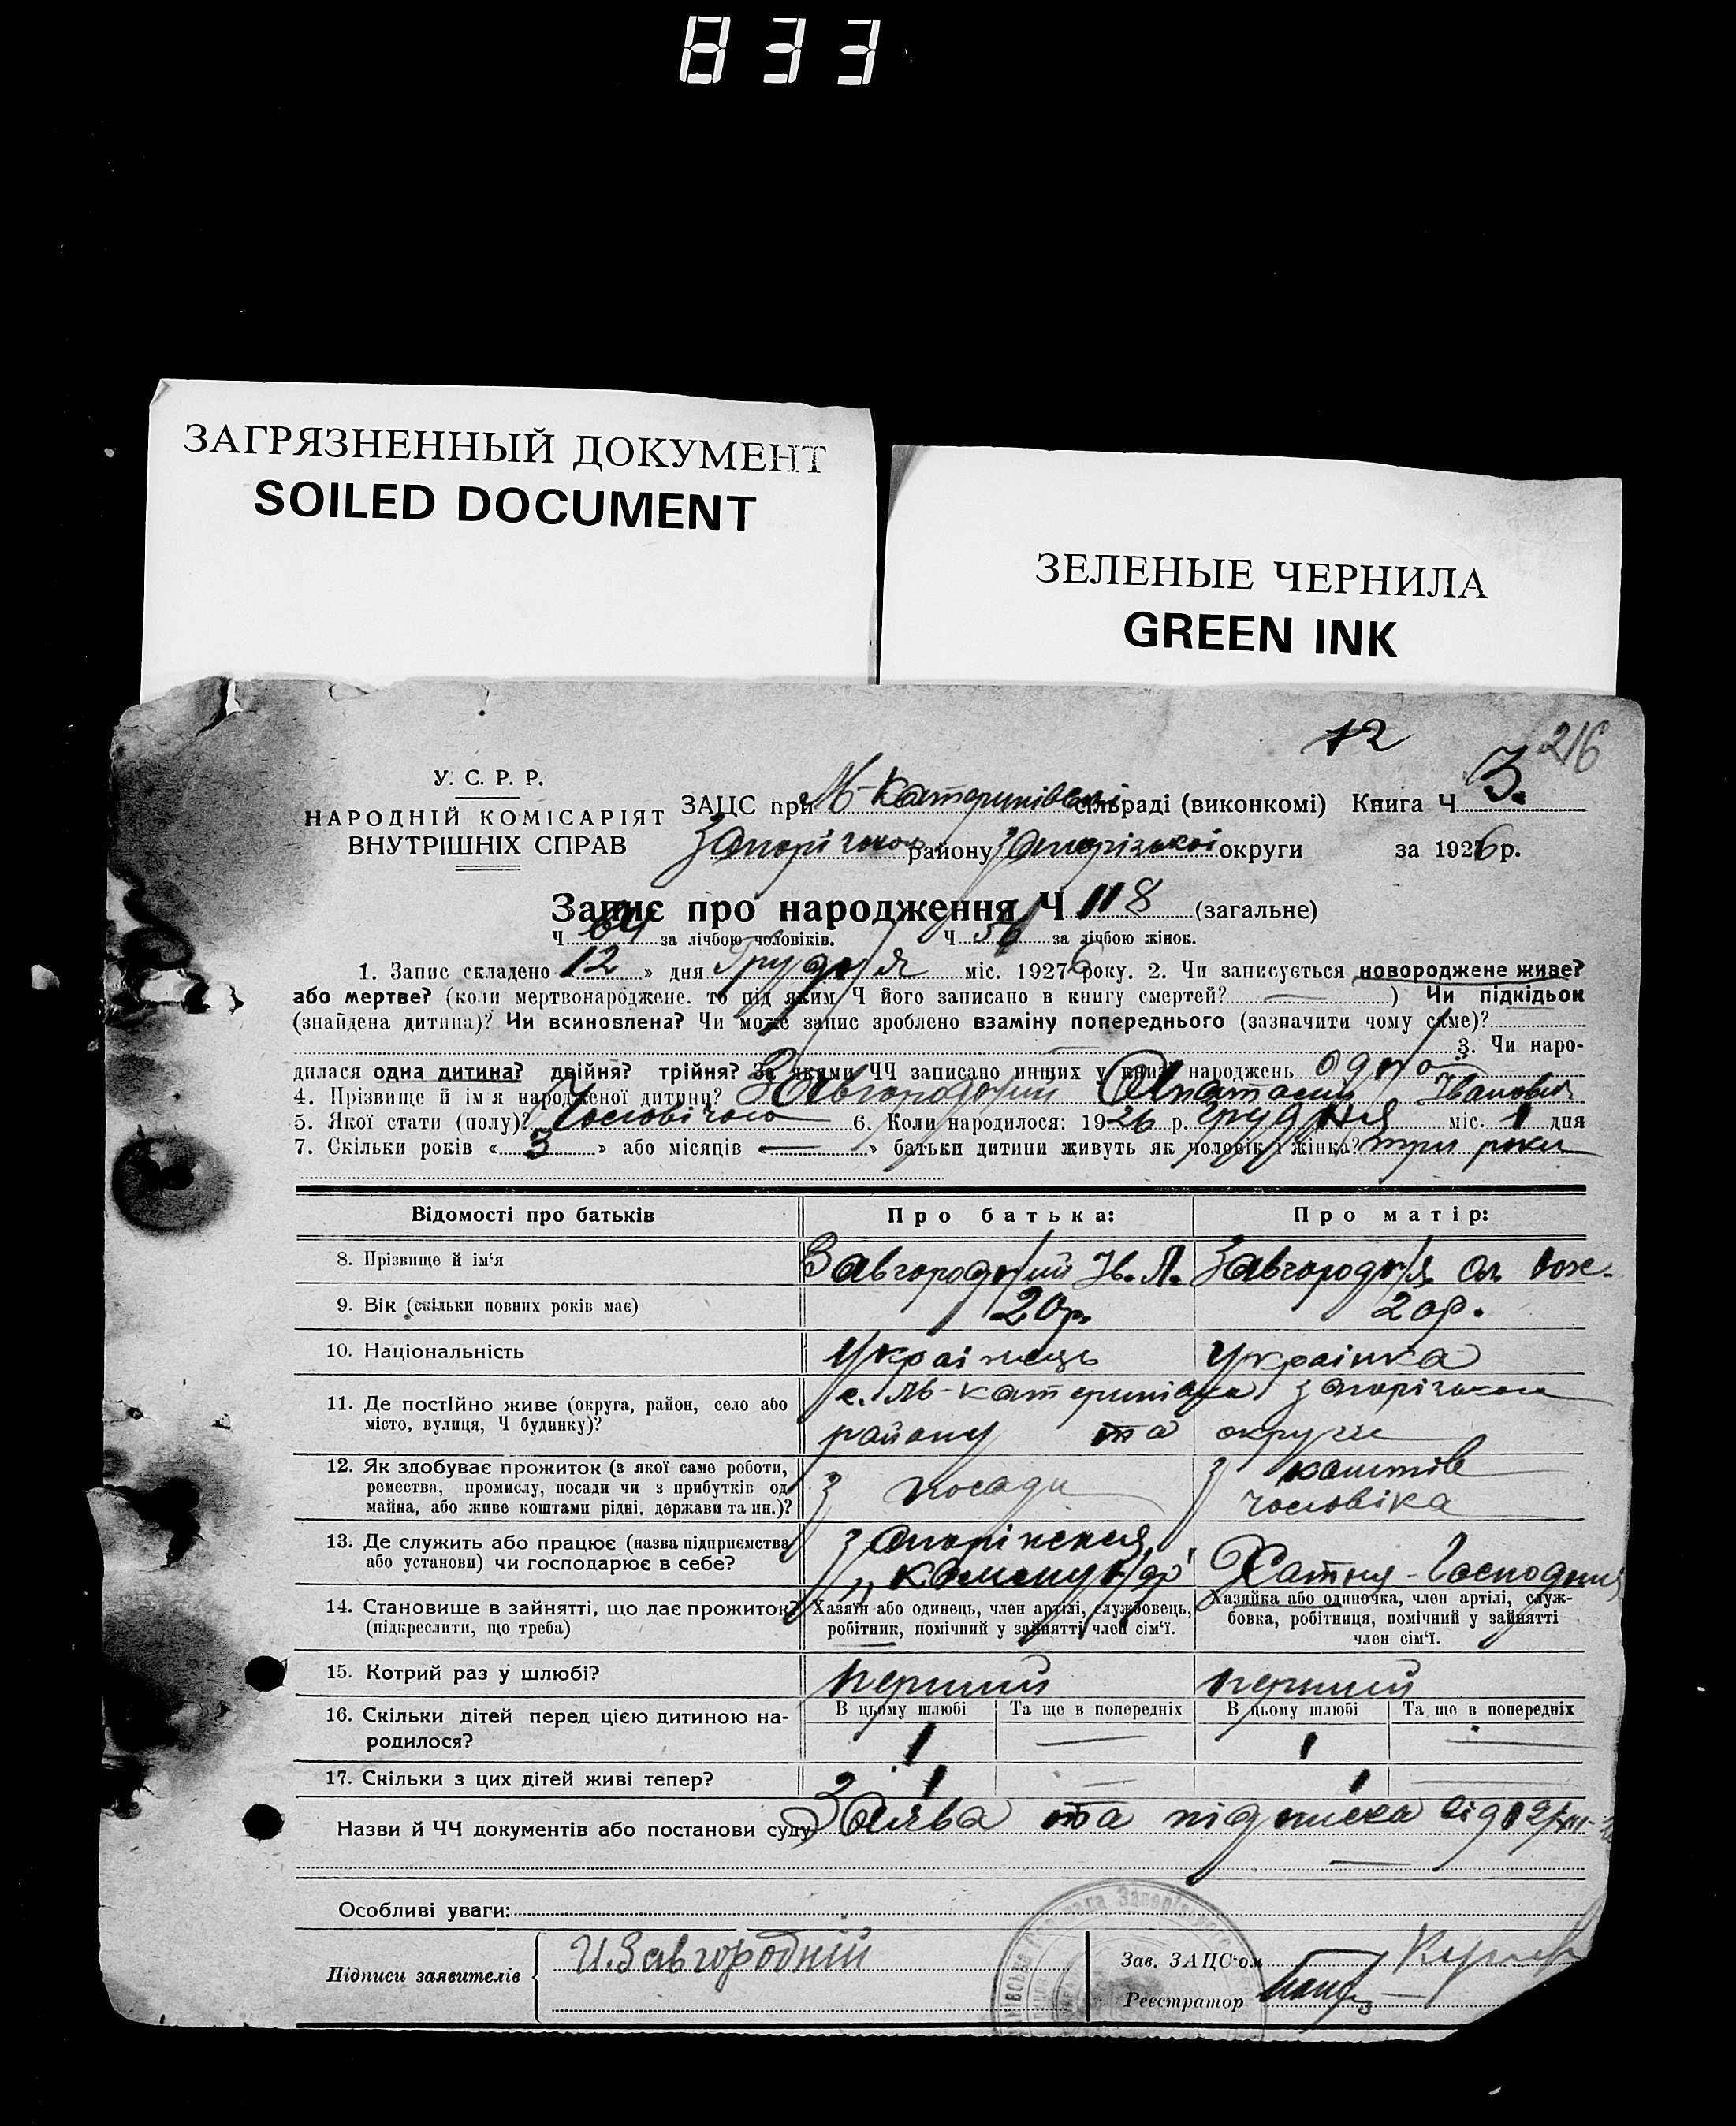 833
ЗАГРЯЗНЕННЫЙ ДОКУМЕНТ
SOILED DOCUMENT
ЗЕЛЕНЫЕ ЧЕРНИЛА
GREEN INK
12 216
У. С. Р. Р.
НАРОДНІЙ КОМІСАРІЯТ
ВНУТРІШНІХ СПРАВ
ЗАЦС при М-Катеринівські сільраді (виконкомі) Книга Ч 3.
району Запорізької округи за 1926 р.
Запис про народження Ч 118 (загальне)
Ч 64 за лічбою чоловіків. Ч за лічбою жінок.
1. Запис складено 12 » дня Грудня міс. 1927 6 року. 2. Чи записується новороджене живе?
або мертве? (коли мертвонароджене, то під яким Ч його записано в книгу смертей? — ) Чи підкідьок
(знайдена дитина)? Чи всиновлена? Чи може запис зроблено взаміну попереднього (зазначити чому саме)?
3. Чи наро-
дилася одна дитина? двійня? трійня? За якими ЧЧ записано инших у книзі народжень одно
4. Прізвище й ім'я народженої дитини? Завгородній Анатолій Іванович
5. Якої стати (полу)? Чоловічого 6. Коли народилося: 1926 р. грудня міс. 1 дня
7. Скільки років « 3 » або місяців « — » батьки дитини живуть як чоловік і жінка? три роки
Відомості про батьків Про батька: Про матір:
8. Прізвище й ім'я Завгородній Ів. Л. Завгородня
9. Вік (скільки повних років має) 20р. 20р.
10. Національність Українець Українка
11. Де постійно живе (округа, район, село або
місто, вулиця, Ч будинку)? с. М-Катеринівка Запорізького
району та округи
12. Як здобуває прожиток (з якої саме роботи,
ремества, промислу, посади чи з прибутків од
майна, або живе коштами рідні, держави та ин.)? з посади з коштів
чоловіка
13. Де служить або працює (назва підприємства
або установи) чи господарює в себе? "Комунар" Хатня-Господиня
14. Становище в зайнятті, що дає прожиток?
(підкреслити, що треба)
Хазяїн або одинець, член артілі, службовець,
робітник, помічний у зайнятті член сім'ї.
Хазяйка або одиночка, член артілі, служ-
бовка, робітниця, помічний у зайнятті
член сім'ї.
15. Котрий раз у шлюбі? перший перший
16. Скільки дітей перед цією дитиною на-
родилося?
В цьому шлюбі Та ще в попередніх В цьому шлюбі Та ще в попередніх
1 — 1 —
17. Скільки з цих дітей живі тепер? 1 — 1 —
Назви й ЧЧ документів або постанови суду Заява та підписка від 12/XII
Особливі уваги:
Підписи заявителів И. Завгородній
Зав. ЗАЦС-ом
Реєстратор